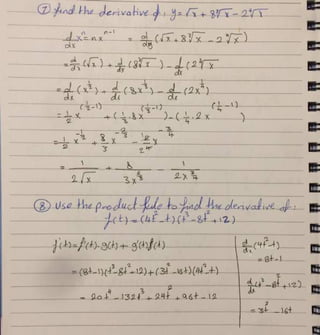 ⑦ find the derivative of: y = √x + 8∛x − 2∜x
d/dx xⁿ = nxⁿ⁻¹ = d/dy (√x + 8∛x − 2∜x)
= d/dx (√x) + d/dx (8∛x) − d/dx (2∜x)
= d/dx (x^½) + d/dx (8x^⅓) − d/dx (2x^¼)
= ½ x^(½−1) + (⅓·8x^(⅓−1)) − (¼·2x^(¼−1))
= ½ x^−½ + 8/3 x^−⅔ − 2/4 x^−¾
= 1/(2√x) + 8/(3x^⅔) − 1/(2x^¾)
⑧ Use the product rule to find the derivative of:
f(t) = (4t² − t)(t³ − 8t² + 12)
f'(t) = f'(t)·g(t) + g'(t)f(t)
= (8t−1)(t³−8t²+12) + (3t²−16t)(4t²−t)
= 20t⁴ − 132t³ + 24t² + 96t − 12
d/dx (4t²−t)
= 8t−1
d/dx (t³−8t²+12)
= 3t² − 16t